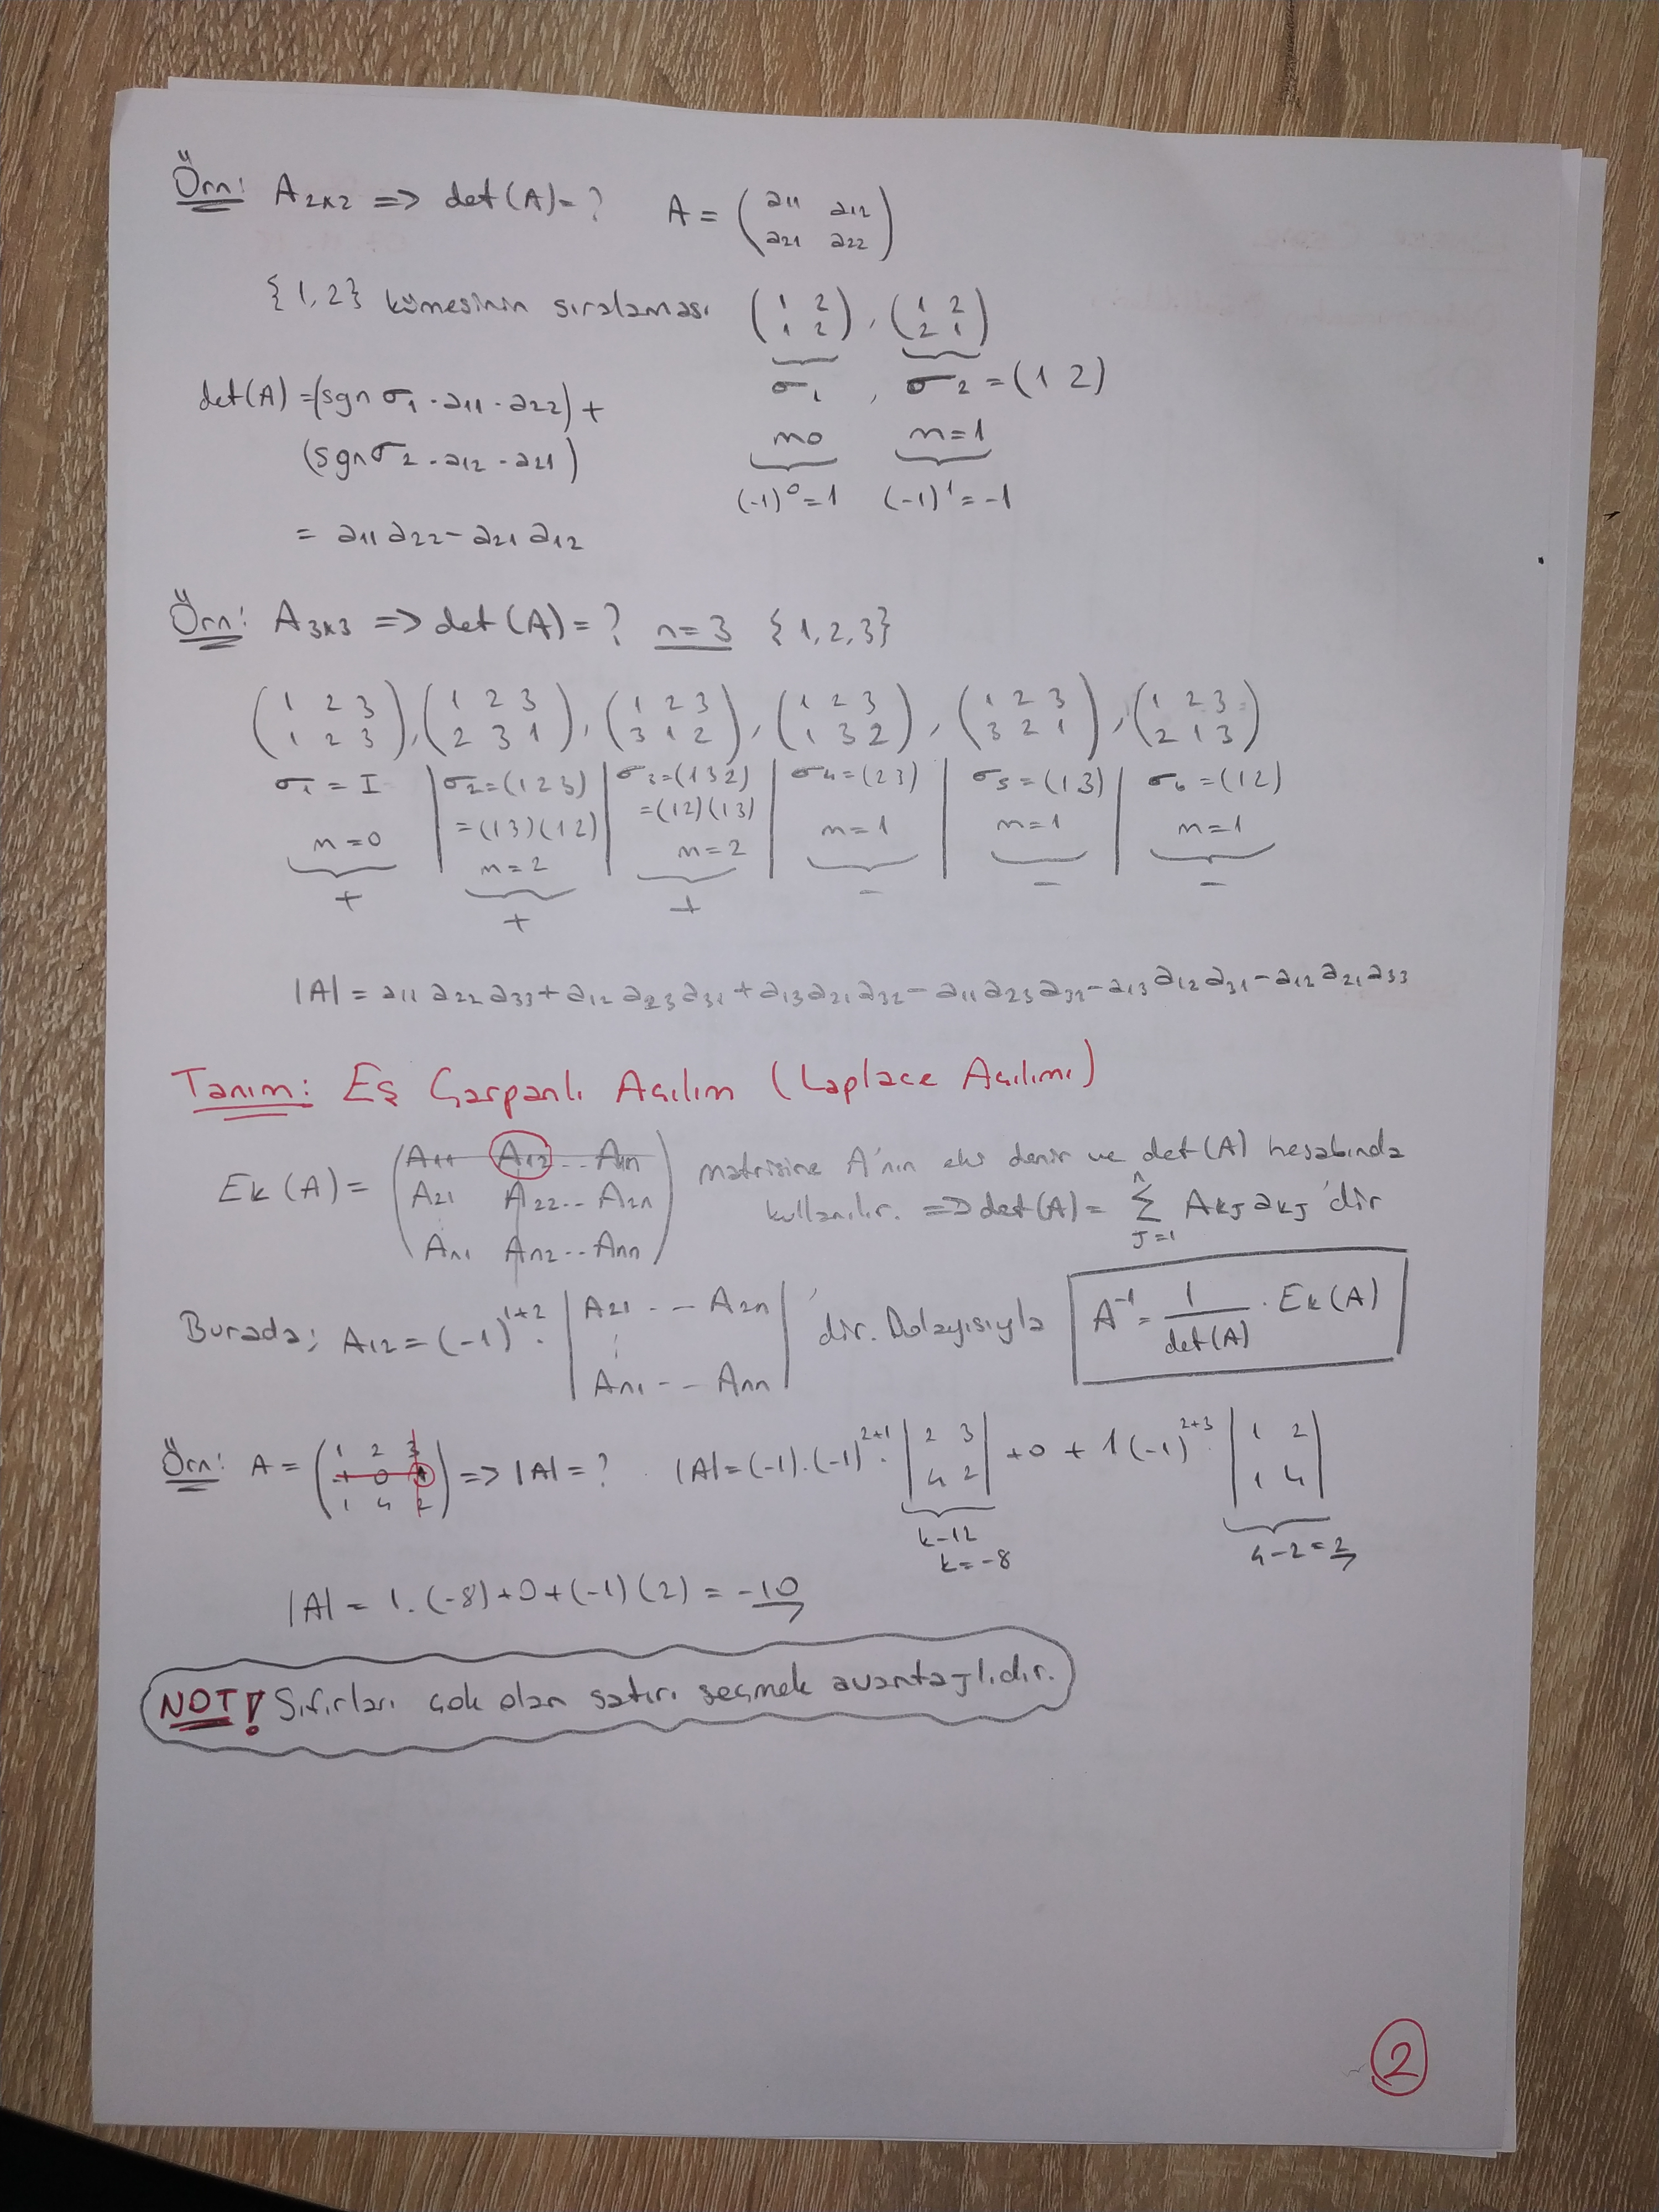 Örn: A₂ₓ₂ => det(A)=? A = (a₁₁ a₁₂
a₂₁ a₂₂)
{1,2} kümesinin sıralaması (1 2
1 2), (1 2
2 1)
σ₁ , σ₂ = (1 2)
det(A) = (sgn σ₁ . a₁₁ . a₂₂) +
(sgn σ₂ . a₁₂ . a₂₁)
m=0 m=1
(-1)⁰=1 (-1)¹=-1
= a₁₁ a₂₂ - a₂₁ a₁₂
Örn: A₃ₓ₃ => det(A)=? n=3 {1,2,3}
(1 2 3
1 2 3), (1 2 3
2 3 1), (1 2 3
3 1 2), (1 2 3
1 3 2), (1 2 3
3 2 1), (1 2 3
2 1 3)
σ₁ = I | σ₂=(1 2 3) | σ₃=(1 3 2) | σ₄=(23) | σ₅=(13) | σ₆=(12)
=(13)(12) =(12)(13)
m=0 m=2 m=2 m=1 m=1 m=1
+ + + - - -
|A| = a₁₁ a₂₂ a₃₃ + a₁₂ a₂₃ a₃₁ + a₁₃ a₂₁ a₃₂ - a₁₁ a₂₃ a₃₂ - a₁₃ a₂₂ a₃₁ - a₁₂ a₂₁ a₃₃
Tanım: Eş Çarpanlı Açılım (Laplace Açılımı)
Ek(A) = (A₁₁ A₁₂ .. A₁ₙ
A₂₁ A₂₂ .. A₂ₙ
Aₙ₁ Aₙ₂ .. Aₙₙ) matrisine A'nın eki denir ve det(A) hesabında
kullanılır. => det(A) = n Σ J=1 AₖJ aₖJ 'dir
Burada; A₁₂ = (-1)¹⁺² . |A₂₁ - - A₂ₙ
:
Aₙ₁ - - Aₙₙ| 'dir. Dolayısıyla
A⁻¹ = 1/det(A) . Ek(A)
Örn: A = (1 2 3
-1 0 1
1 4 2) => |A| = ? |A| = (-1).(-1)²⁺¹ . |2 3
4 2| + 0 + 1(-1)²⁺³ |1 2
1 4|
4-12
k=-8
4-2=2
|A| = 1.(-8)+0+(-1)(2) = -10
NOT! Sıfırları çok olan satırı seçmek avantajlıdır.
2